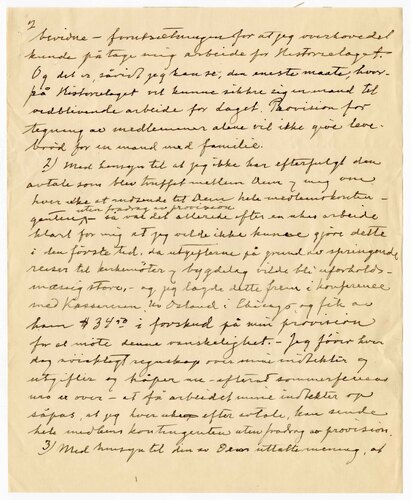 2
bevidne – forutsætningen for at jeg overhovedet
kunde påtage mig arbeide for Historielaget.
Og det er, såvidt jeg kan se, den eneste maate, hvor-
på Historielaget vil kunne sikre sig en mand til
vedblivende arbeide for laget. Provision for
tegning av medlemmer alene vil ikke give leve-
brød for en mand med familie.
2) Med hensyn til at jeg ikke har efterfulgt den
avtale som blev truffet mellem Dem og mig om
hver uke at indsende til Dem hele medlemskontin-
genten uten fradrag av provision – så var det allerede efter en ukes arbeide
klart for mig at jeg vilde ikke kunne gjøre dette
i den første tid, da utgifterne på grund av springende
reiser til kirkemöter & bygdelag vilde bli uforholds-
mæssig store, – og jeg lagde dette frem i konference
med Kasserer Ostand i Chicago og fik av
ham $34 i forskud på min provision
for at møte denne vanskelighet. – Jeg förer hver
dag nöiagtigt regnskap over mine indtekter og
utgifter og håper nu – efterat sommerferiens
er over – at få arbeidet mine indtekter op
såpas, at jeg hver uke efter avtale, kan sende
hele medlemskontingenten uten fradrag av provision.
3) Med hensyn til den av Dem uttalte mening, at